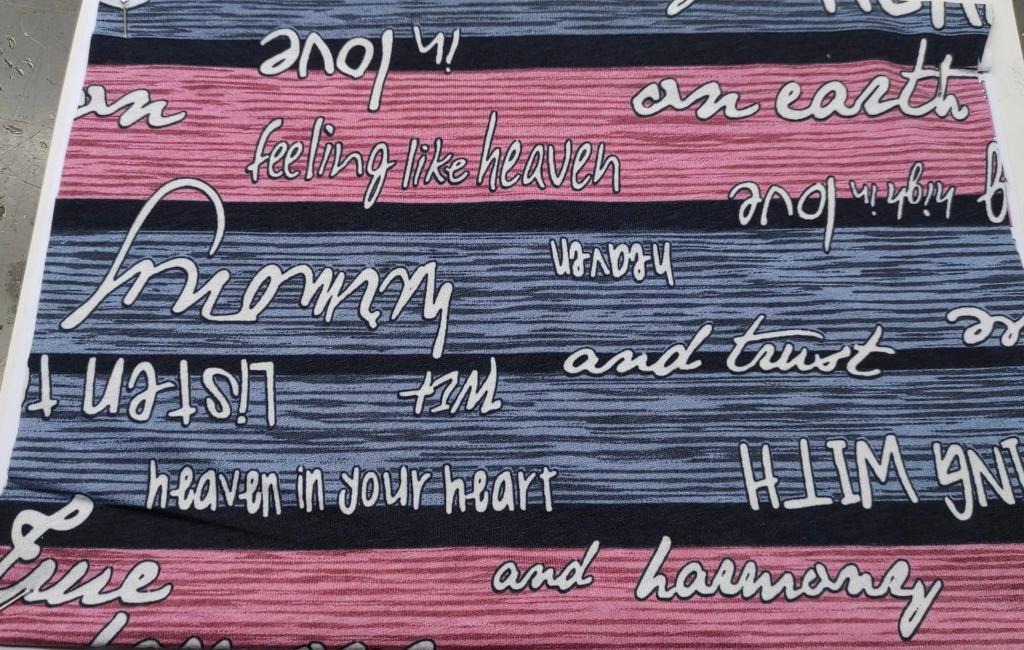 in love
on earth
on
feeling like heaven
high in love
heaven
harmony
and trust
Listen t
wit
ING WITH
heaven in your heart
&
true
and harmony